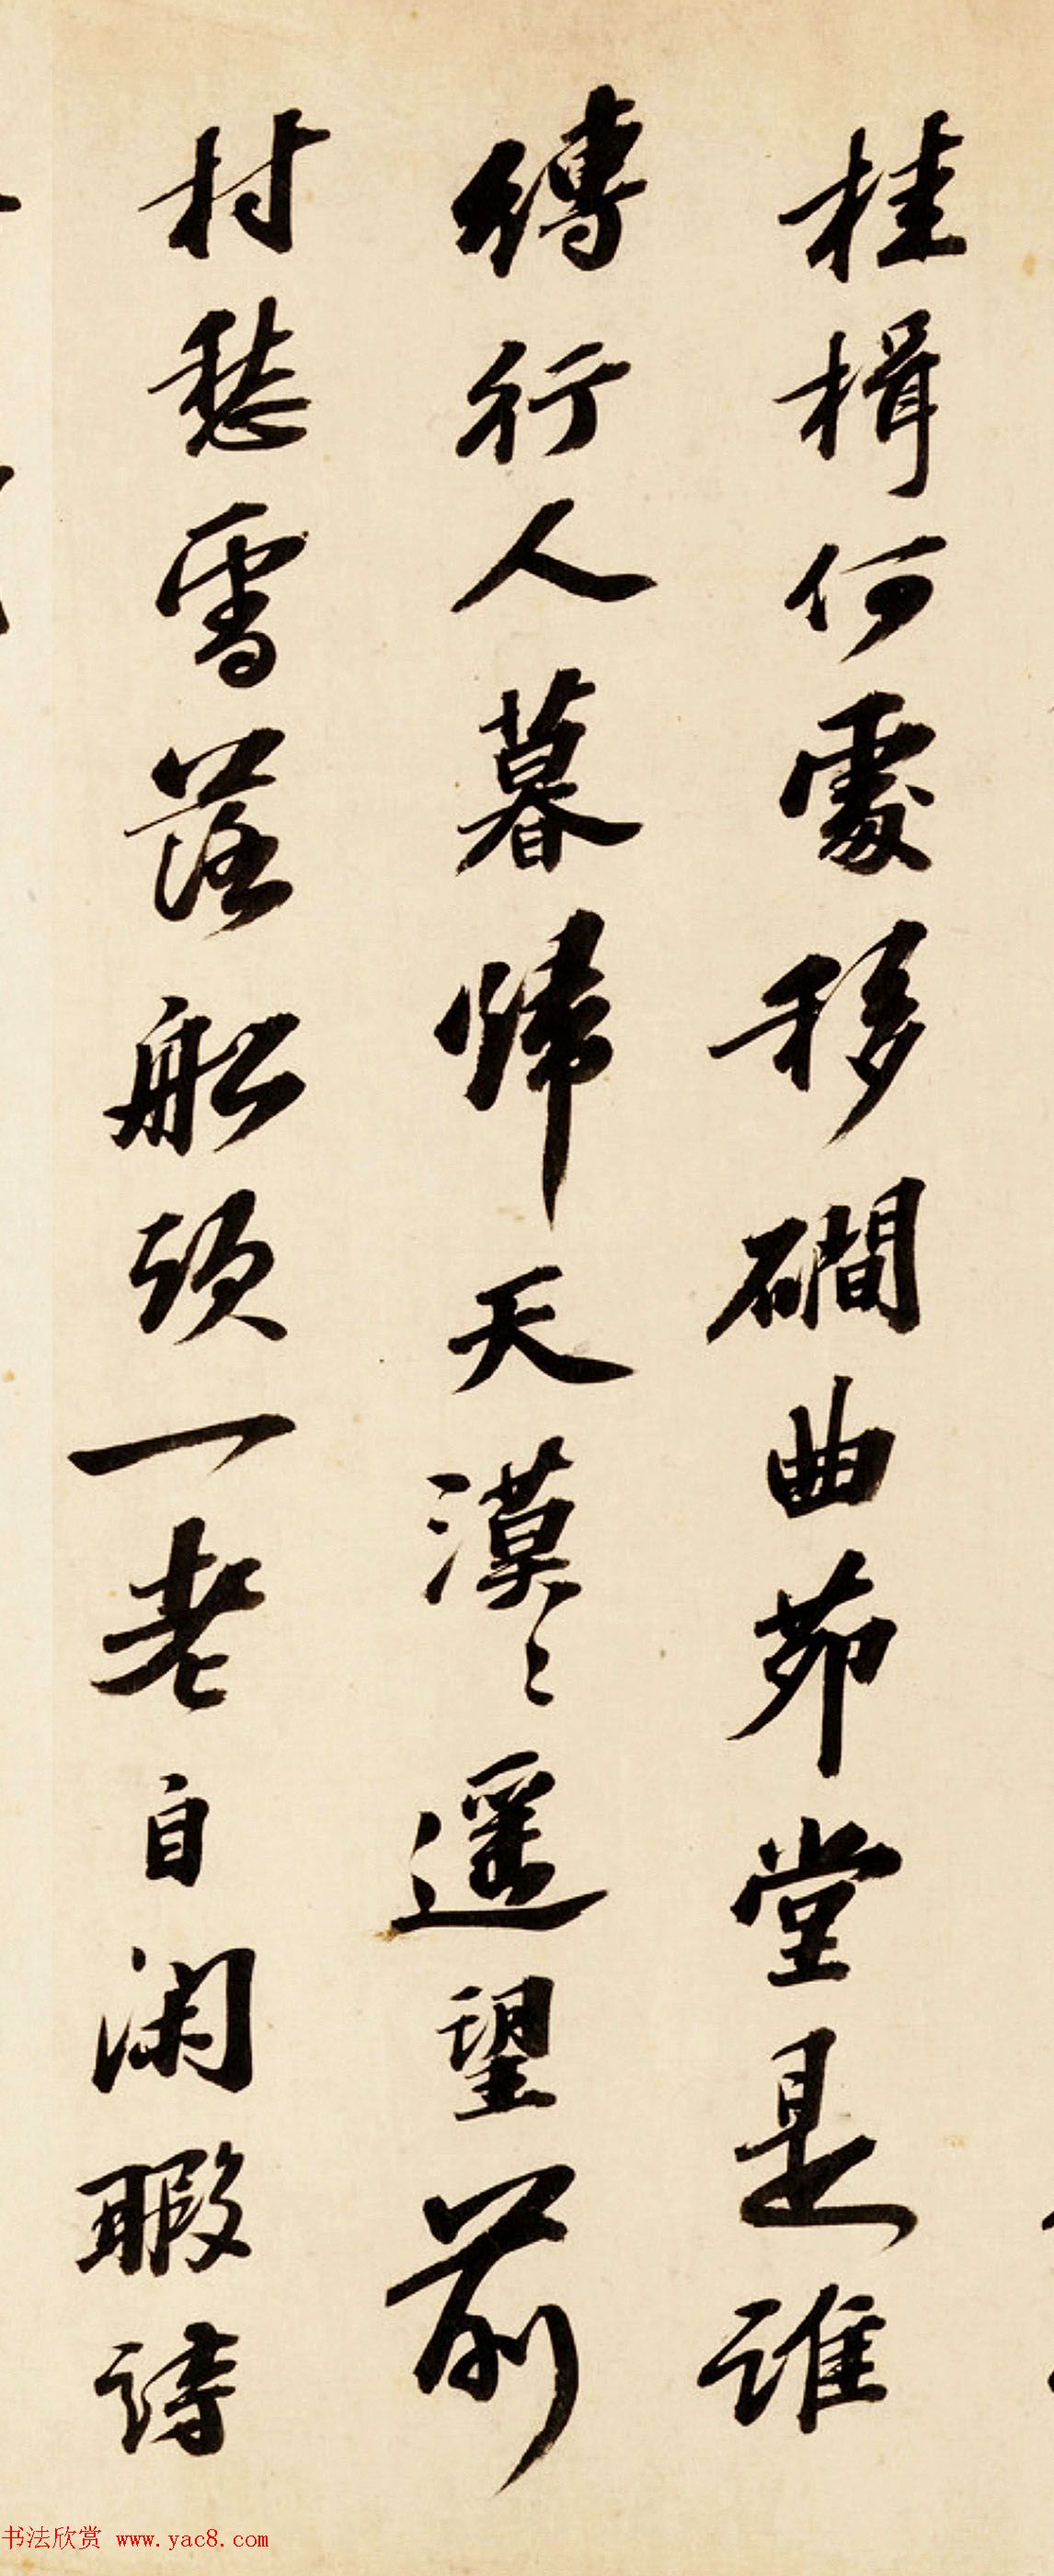 桂楫何處移磵曲茆堂是誰
縛行人暮歸天漠〻遥望前
村愁雪落船頭一老自閑暇詩
书法欣赏 www.yac8.com